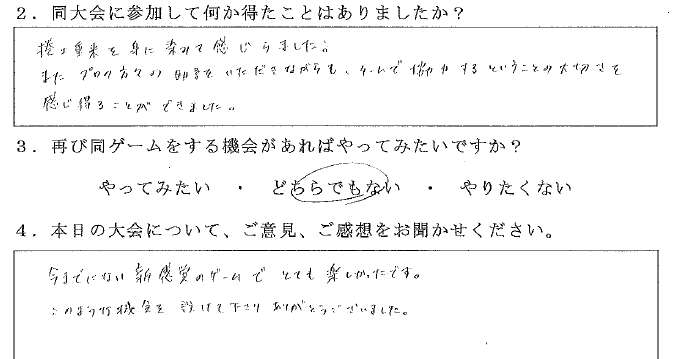 2．同大会に参加して何か得たことはありましたか？
捲土重来を身に染みて感じらました。
また プロの方々の助言をいただきながらも、ゲームで協力するということの大切さを
感じ得ることができました。
3．再び同ゲームをする機会があればやってみたいですか？
やってみたい ・ どちらでもない ・ やりたくない
4．本日の大会について、ご意見、ご感想をお聞かせください。
今までにない新感覚のゲームで とても楽しかったです。
このような機会を設けて下さり ありがとうございました。